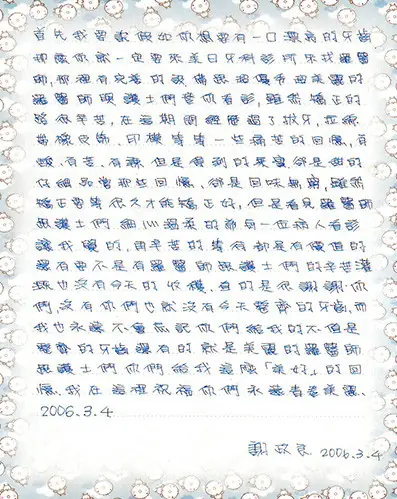 首先我要說假如你想要有一口漂亮的牙齒
那麼你就一定要來美日牙科診所來找羅醫
師,你裡有完善的設備與溫馨手迎美麗的
羅醫師跟護士們替你看診,雖然矯正的
路很辛苦,在這期間經歷過了拔牙,拉線
等橡皮筋、印模等等一些痛苦的回憶,有
酸、有苦、有淚,但是得到的果實卻是甜的
仔細品嘗那些回憶,卻是回味無窮,雖然
矯正要等很久才能矯正好,但是看見羅醫師
跟護士們細心溫柔的為每一位病人看診
讓我覺的,再辛苦的等待都是有價值的
還有要不是有羅醫師跟護士們的辛苦灌
溉也沒有今天的收穫。真的是很謝謝你
們沒有你們也就沒有今天整齊的牙齒,而
我也永遠不會忘記你們給我的不但是
整齊的牙齒還有的就是美麗的羅醫師
跟護士們你們給我這段「美好」的回
憶、我在這裡祝福你們永遠青春美麗..
2006.3.4
謝政良 2006.3.4